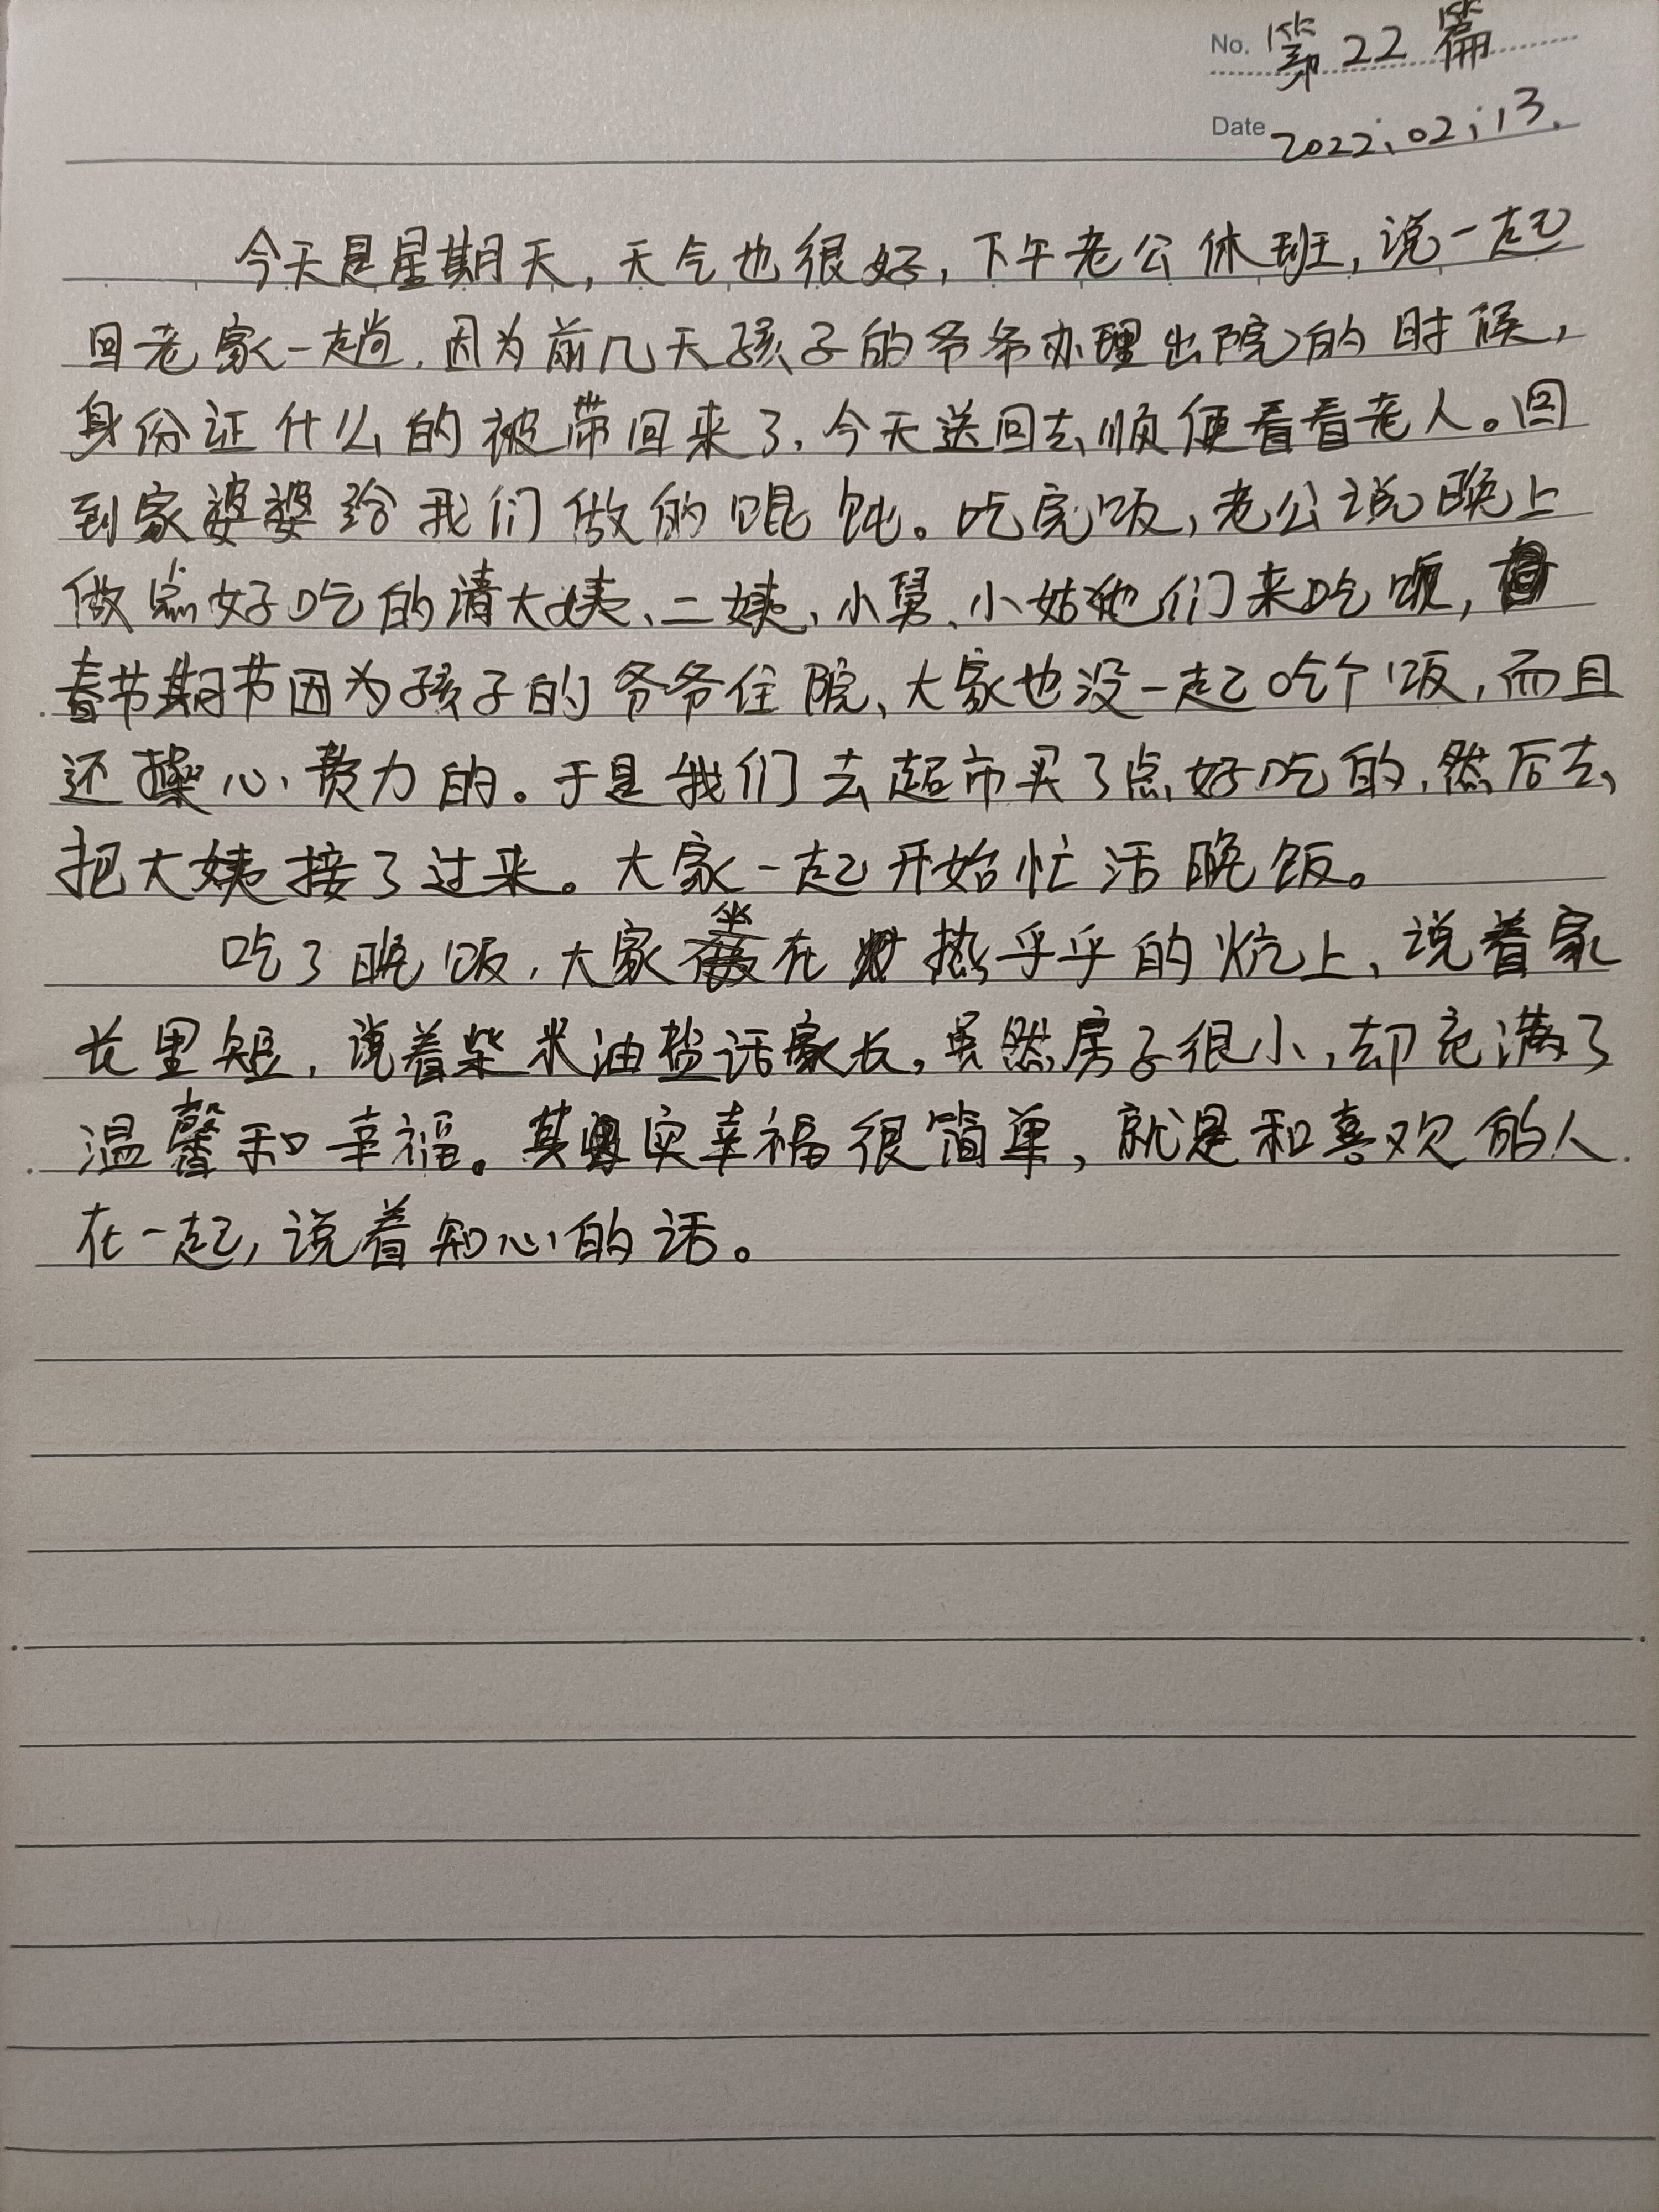 No. 第22篇
Date 2022.02.13.
今天是星期天,天气也很好,下午老公休班,说一起
回老家一趟.因为前几天孩子的爷爷办理出院的时候,
身份证什么的被带回来了,今天送回去顺便看看老人。回
到家婆婆给我们做的馄饨。吃完饭,老公说晚上
做点好吃的请大姨、二姨、小舅、小姑他们来吃饭,
春节期节因为孩子的爷爷住院、大家也没一起吃个饭,而且
还操心、费力的。于是我们去超市买了点好吃的,然后去
把大姨接了过来。大家一起开始忙活晚饭。
吃了晚饭,大家坐在热乎乎的炕上、说着家
长里短,说着柴米油盐话家长,虽然房子很小,却充满了
温馨和幸福。其实幸福很简单,就是和喜欢的人
在一起,说着知心的话。